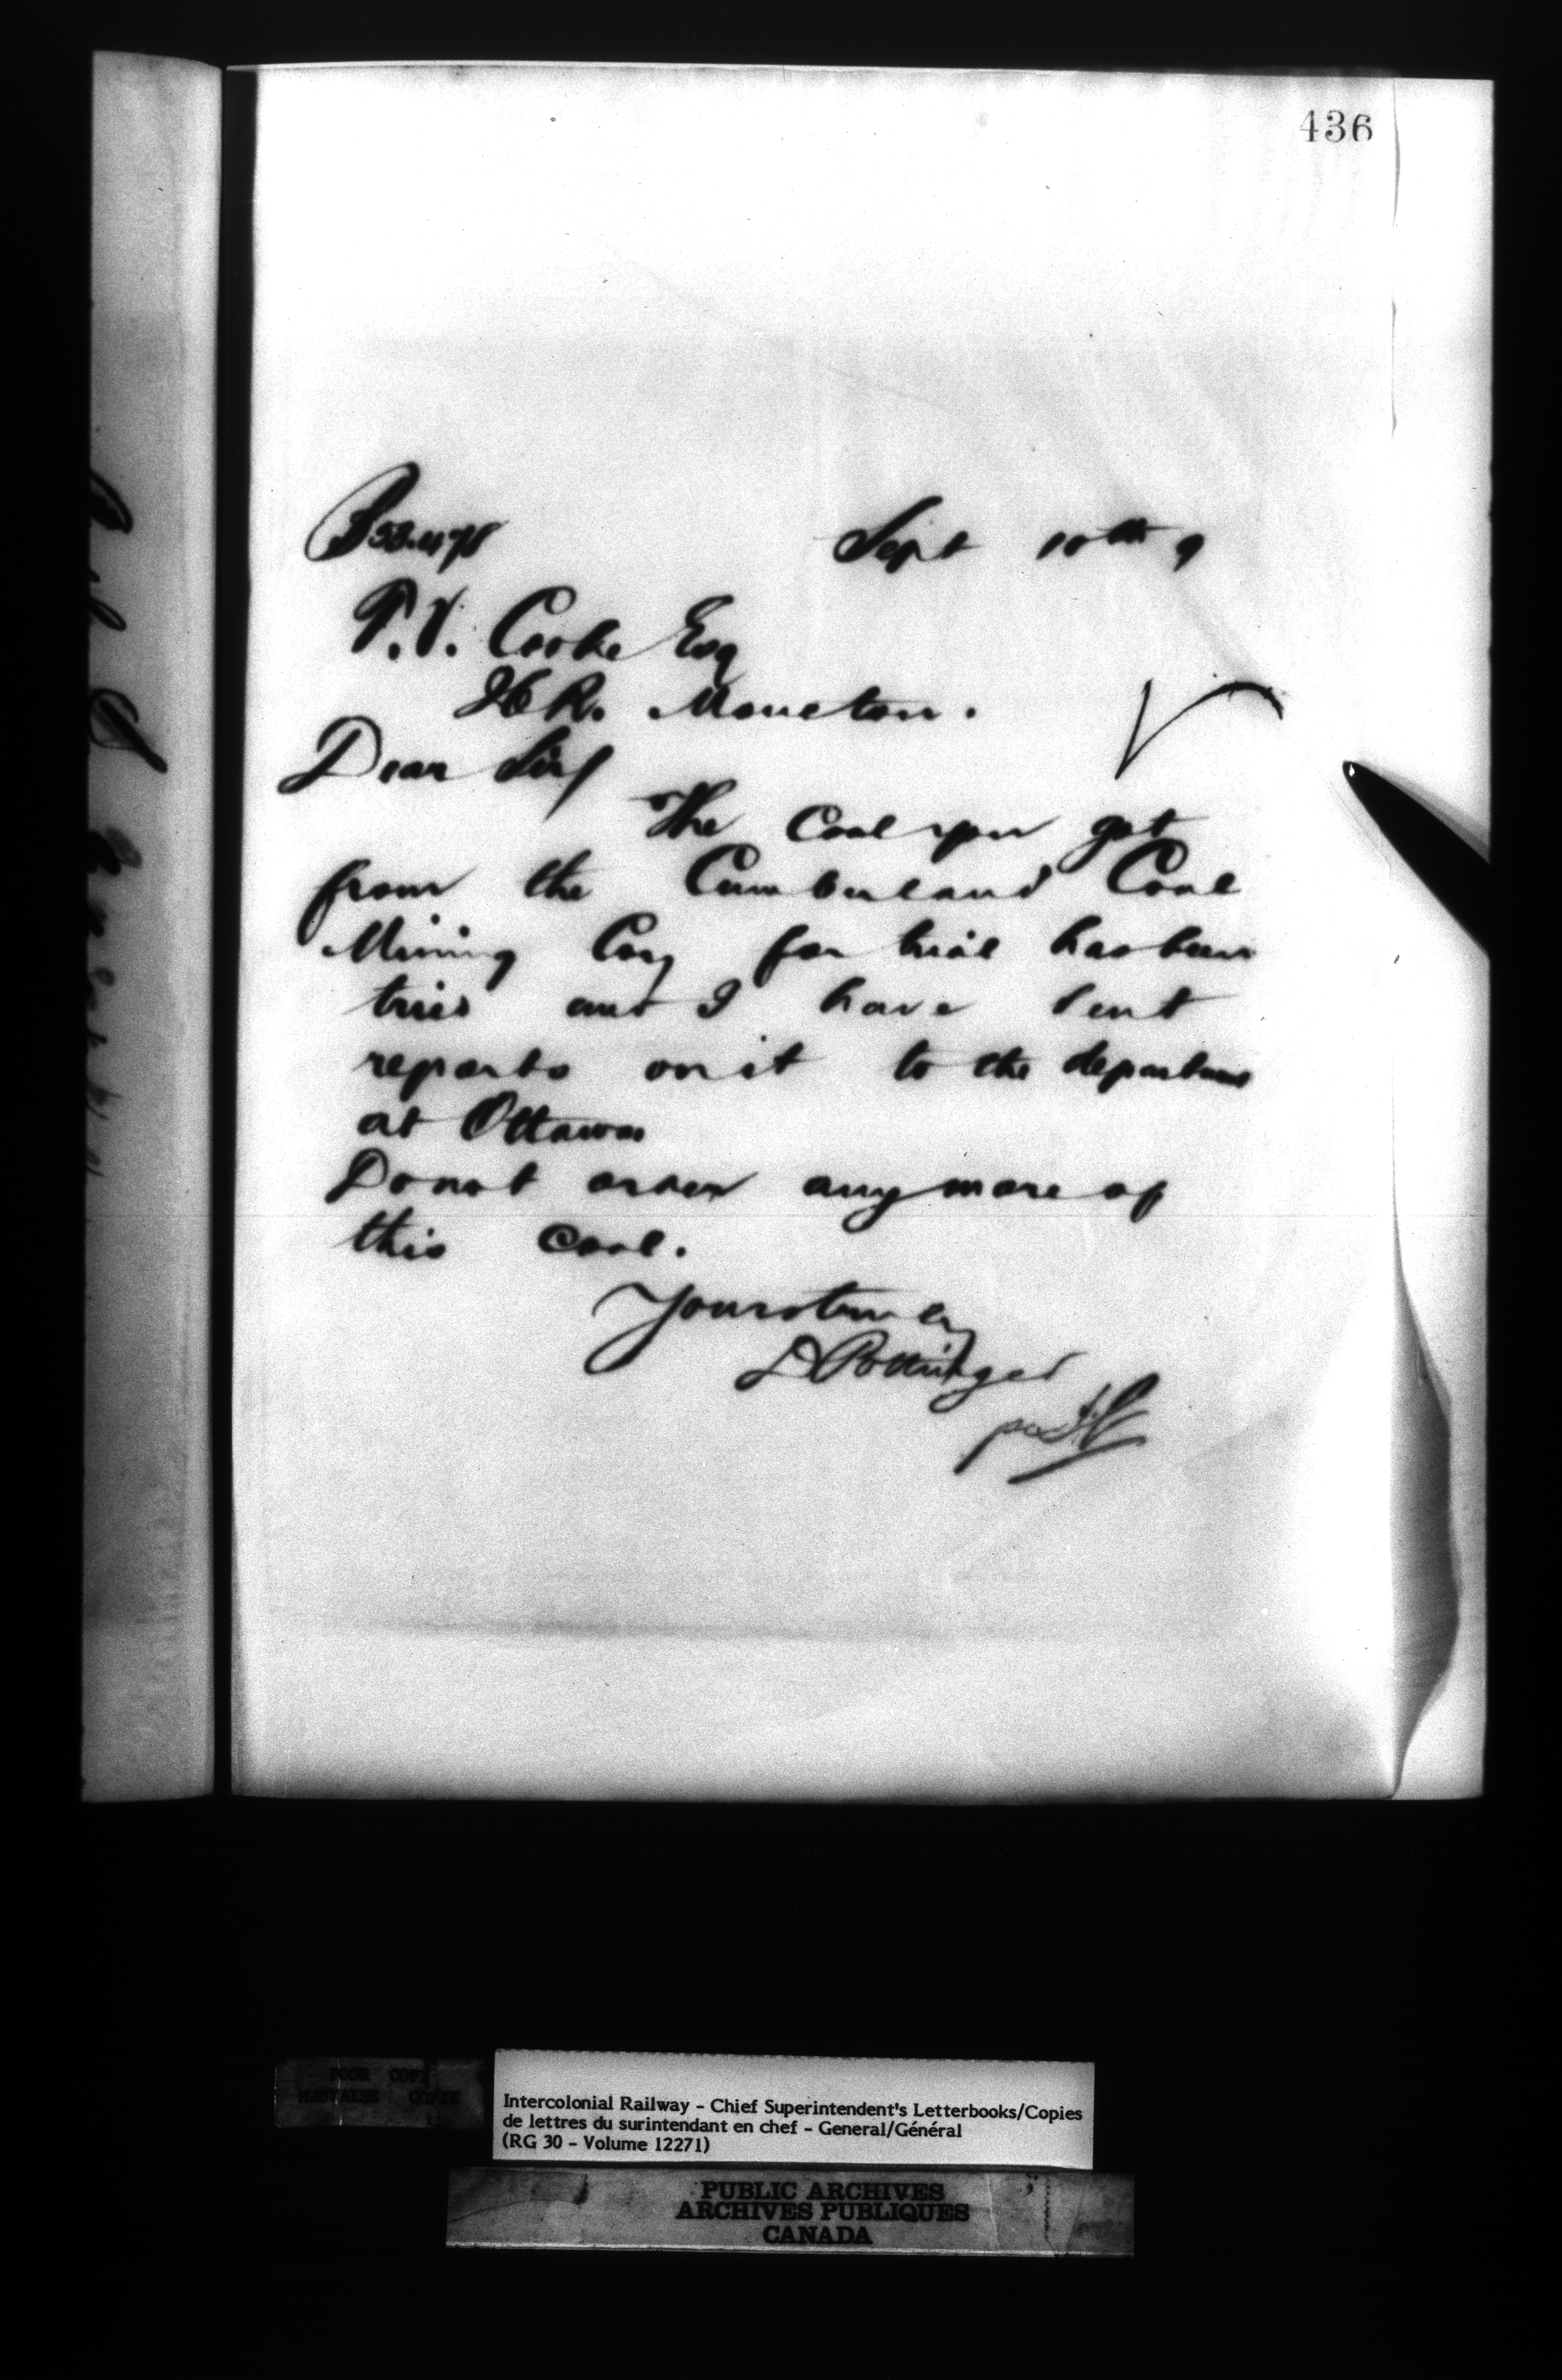 436
Sept 10th 9
T.V. Cooke Esq
Moncton.
Dear Sir/
The Coal you got
from the Cumberland Coal
Mining Coy for trial has been
tried and I have sent
reports on it to the department
at Ottawa
Do not order any more of
this coal.
Yours truly
D Pottinger
POOR COPY
MAUVAISE COPIE
Intercolonial Railway - Chief Superintendent's Letterbooks/Copies
de lettres du surintendant en chef - General/Général
(RG 30 - Volume 12271)
PUBLIC ARCHIVES
ARCHIVES PUBLIQUES
CANADA